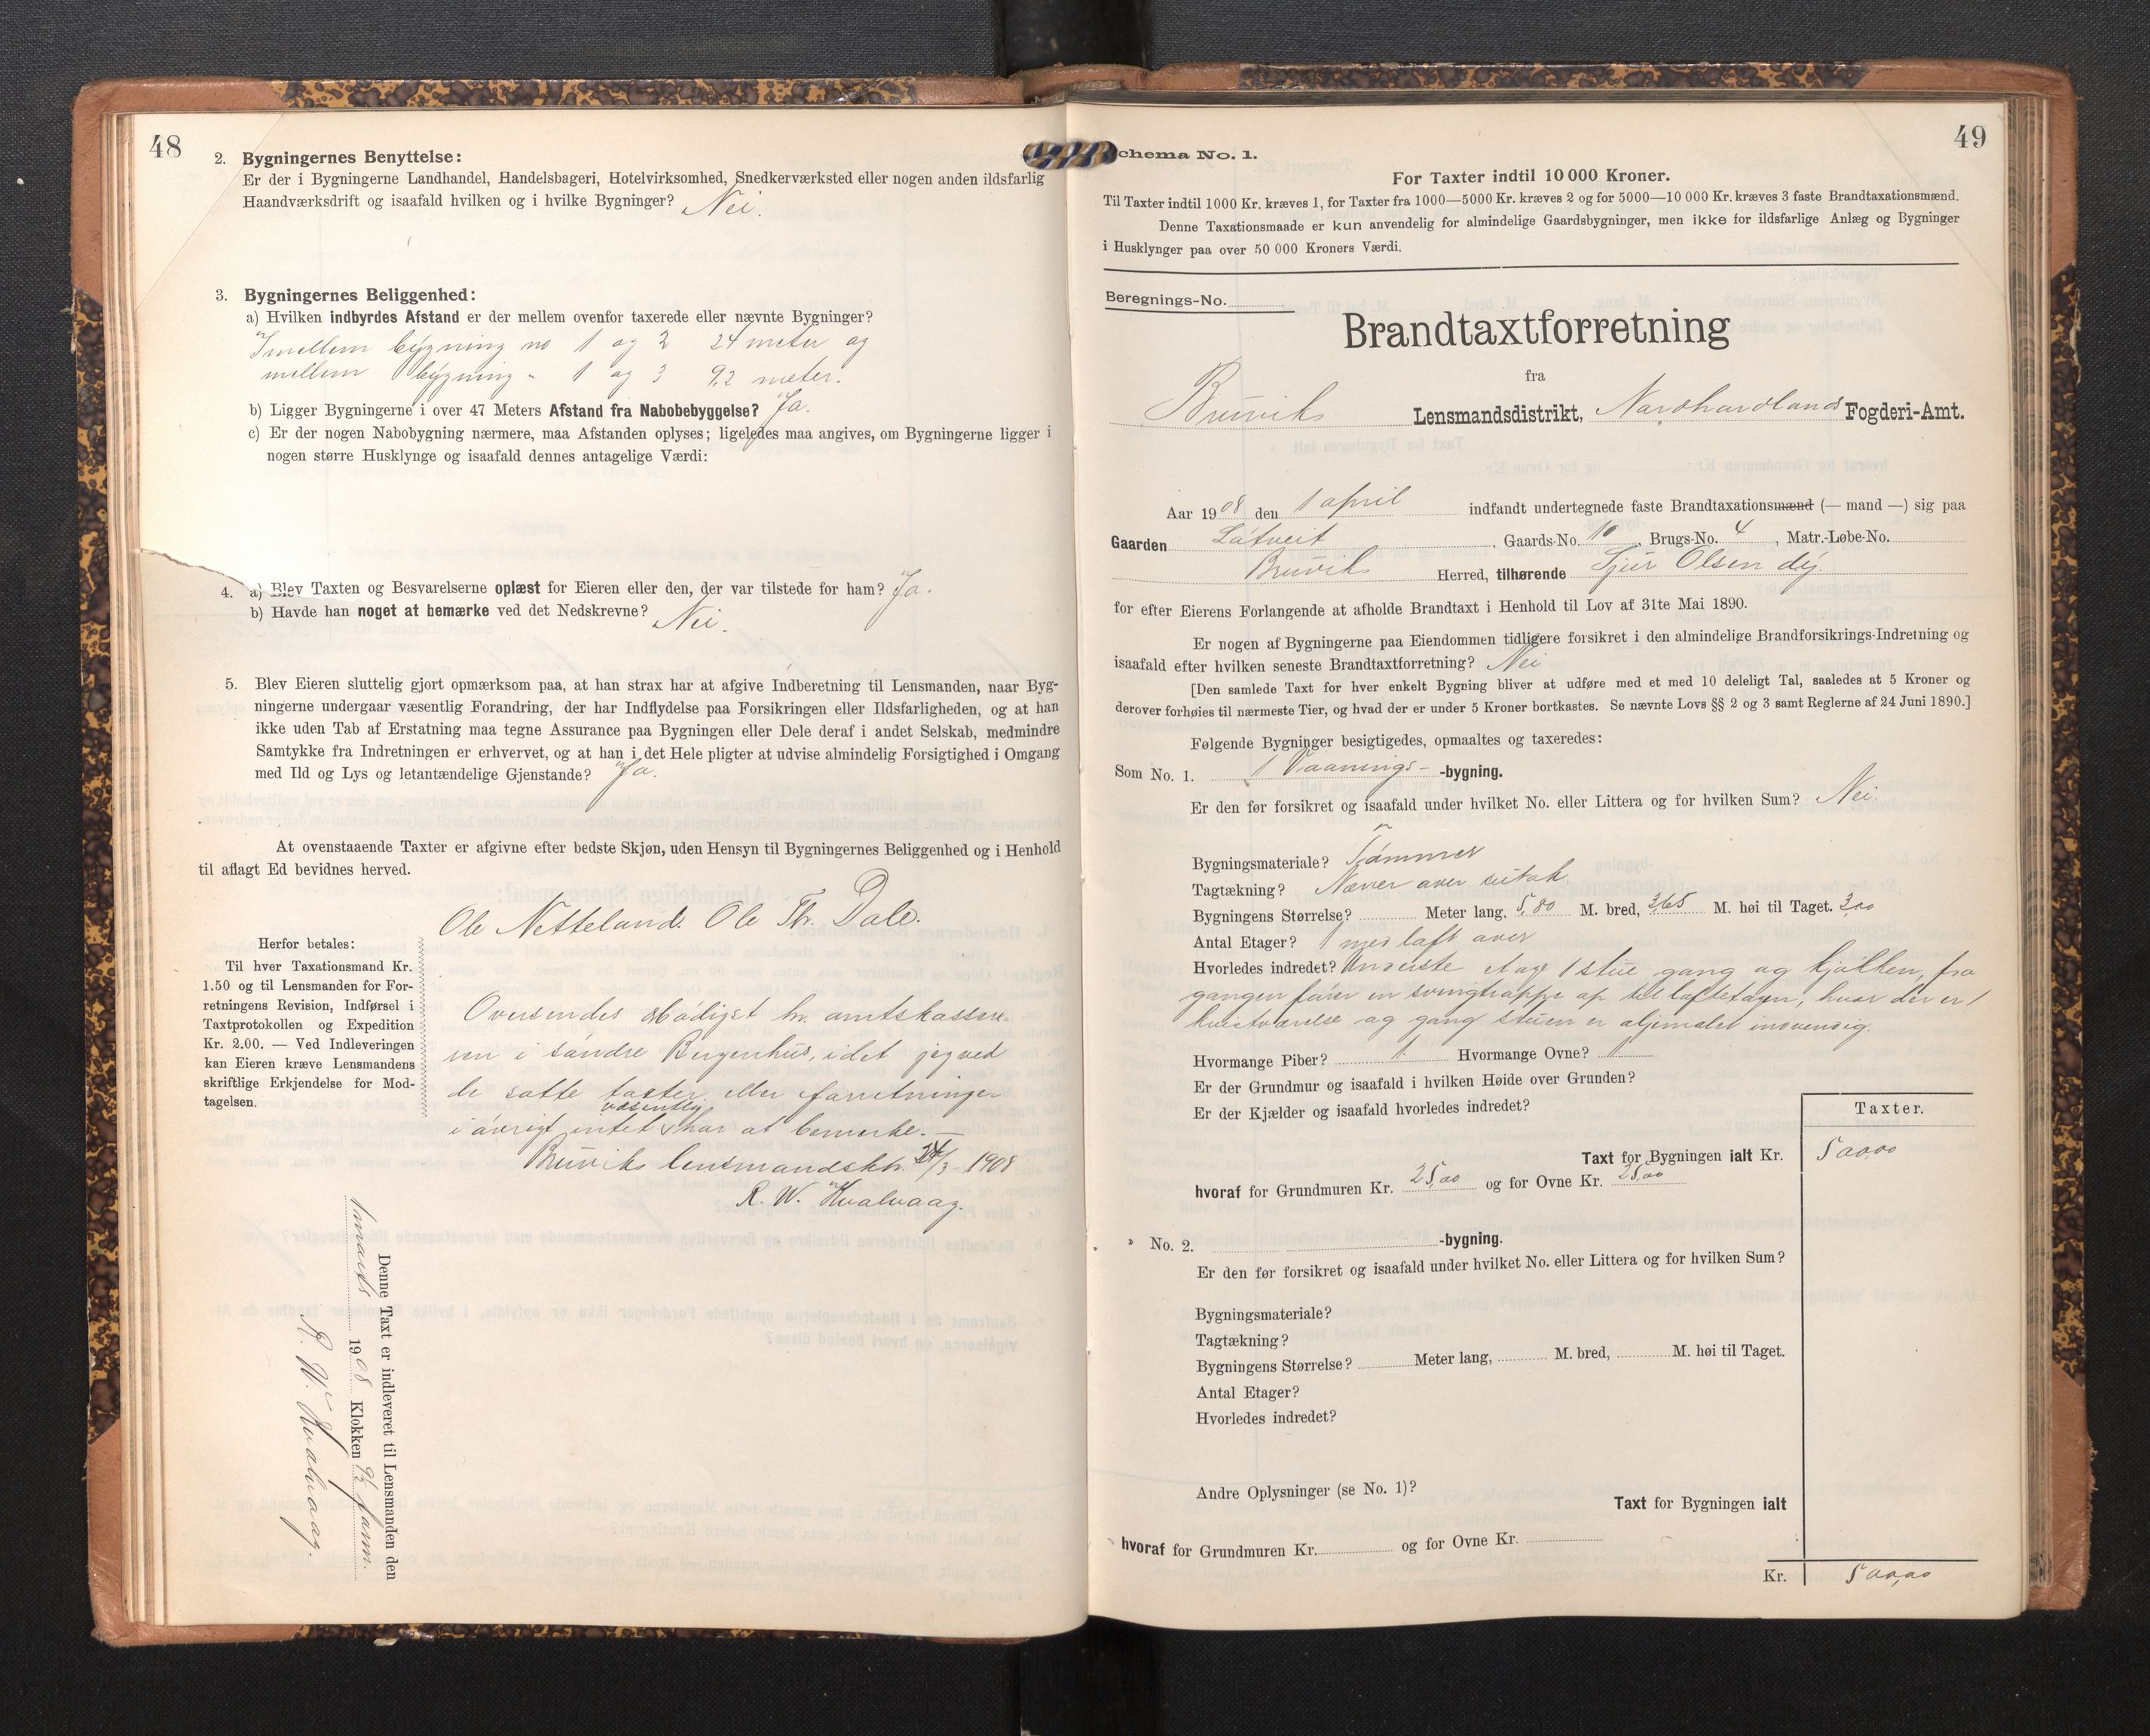 48
2. Bygningernes Benyttelse:
Er der i Bygningerne Landhandel, Handelsbageri, Hotelvirksomhed, Snedkerværksted eller nogen anden ildsfarlig
Haandværksdrift og isaafald hvilken og i hvilke Bygninger? Nei.
3. Bygningernes Beliggenhed:
a) Hvilken indbyrdes Afstand er der mellem ovenfor taxerede eller nævnte Bygninger?
Imellem bygning no 1 og 2 24 meter og
mellem bygning " 1 og 3 9,2 meter.
b) Ligger Bygningerne i over 47 Meters Afstand fra Nabobebyggelse? Ja.
c) Er der nogen Nabobygning nærmere, maa Afstanden oplyses; ligeledes maa angives, om Bygningerne ligger i
nogen større Husklynge og isaafald dennes antagelige Værdi:
4. a) Blev Taxten og Besvarelserne oplæst for Eieren eller den, der var tilstede for ham? Ja.
b) Havde han noget at bemærke ved det Nedskrevne? Nei.
5. Blev Eieren sluttelig gjort opmærksom paa, at han strax har at afgive Indberetning til Lensmanden, naar Byg-
ningerne undergaar væsentlig Forandring, der har Indflydelse paa Forsikringen eller Ildsfarligheden, og at han
ikke uden Tab af Erstatning maa tegne Assurance paa Bygningen eller Dele deraf i andet Selskab, medmindre
Samtykke fra Indretningen er erhvervet, og at han i det Hele pligter at udvise almindelig Forsigtighed i Omgang
med Ild og Lys og letantændelige Gjenstande? Ja.
At ovenstaaende Taxter er afgivne efter bedste Skjøn, uden Hensyn til Bygningernes Beliggenhed og i Henhold
til aflagt Ed bevidnes herved.
Ole Netteland. Ole Th. Dale.
Herfor betales:
Til hver Taxationsmand Kr.
1.50 og til Lensmanden for For-
retningens Revision, Indførsel i
Taxtprotokollen og Expedition
Kr. 2.00. — Ved Indleveringen
kan Eieren kræve Lensmandens
skriftlige Erkjendelse for Mod-
tagelsen.
Oversendes hr. amtskasse-
ren i søndre Bergenhus, idet jeg ved
de satte taxter eller forretninger
i øvrigt intet væsentlig har at bemerke. —
Bruviks lensmandsktr. 24/3 - 1908
R. W. Kvalvaag.
Denne Taxt er indleveret til Lensmanden den
marts 1908 Klokken 9½ form.
R. W. Kvalvaag.
49
Schema No. 1.
For Taxter indtil 10 000 Kroner.
Til Taxter indtil 1000 Kr. kræves 1, for Taxter fra 1000—5000 Kr. kræves 2 og for 5000—10 000 Kr. kræves 3 faste Brandtaxationsmænd.
Denne Taxationsmaade er kun anvendelig for almindelige Gaardsbygninger, men ikke for ildsfarlige Anlæg og Bygninger
i Husklynger paa over 50 000 Kroners Værdi.
Beregnings-No.
Brandtaxtforretning
fra
Bruviks Lensmandsdistrikt, Nordhordlands Fogderi-Amt.
Aar 1908 den 1 april indfandt undertegnede faste Brandtaxationsmænd (— mand —) sig paa
Gaarden Låtveit, Gaards-No. 10, Brugs-No. 4, Matr.-Løbe-No.
Bruviks Herred, tilhørende Sjur Olsen
for efter Eierens Forlangende at afholde Brandtaxt i Henhold til Lov af 31te Mai 1890.
Er nogen af Bygningerne paa Eiendommen tidligere forsikret i den almindelige Brandforsikrings-Indretning og
isaafald efter hvilken seneste Brandtaxtforretning? Nei
[Den samlede Taxt for hver enkelt Bygning bliver at udføre med et med 10 deleligt Tal, saaledes at 5 Kroner og
derover forhøies til nærmeste Tier, og hvad der er under 5 Kroner bortkastes. Se nævnte Lovs §§ 2 og 3 samt Reglerne af 24 Juni 1890.]
Følgende Bygninger besigtigedes, opmaaltes og taxeredes:
Som No. 1. 1 Vaanings- -bygning.
Er den før forsikret og isaafald under hvilket No. eller Littera og for hvilken Sum? Nei.
Bygningsmateriale? Tømmer
Tagtækning? Næver over sutak
Bygningens Størrelse? Meter lang, 5,80 M. bred, 3,65 M. høi til Taget. 3,00
Antal Etager? 1 med loft over
Hvorledes indredet? Underste etage 1 stue gang og kjøkken, fra
gangen fører en svingtrappe op til loftetagen, hvor der er 1
kvistværelse og gang stuen er oljemalet indvendig.
Hvormange Piber? 1. Hvormange Ovne? 1
Er der Grundmur og isaafald i hvilken Høide over Grunden?
Er der Kjælder og isaafald hvorledes indredet?
Taxter.
Taxt for Bygningen ialt Kr. 500,00
hvoraf for Grundmuren Kr. 25,00 og for Ovne Kr. 25,00
» No. 2. -bygning.
Er den før forsikret og isaafald under hvilket No. eller Littera og for hvilken Sum?
Bygningsmateriale?
Tagtækning?
Bygningens Størrelse? Meter lang, M. bred, M. høi til Taget.
Antal Etager?
Hvorledes indredet?
Andre Oplysninger (se No. 1)?
Taxt for Bygningen ialt
hvoraf for Grundmuren Kr. og for Ovne Kr.
Kr. 500,00